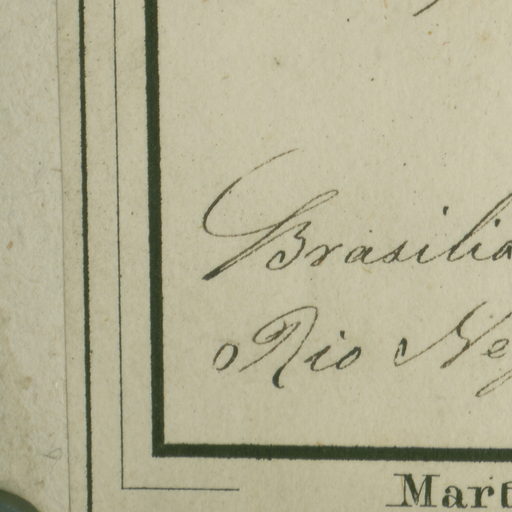 Brasilia
Rio Neg
Mart